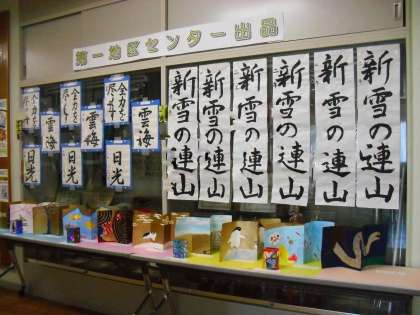 第一地区センター出品
全力を
尽くす
全力を
尽くす
全力を
尽くす
雲海
雲海
雲海
日光
日光
日光
新雪の連山
新雪の連山
新雪の連山
新雪の連山
新雪の連山
新雪の連山